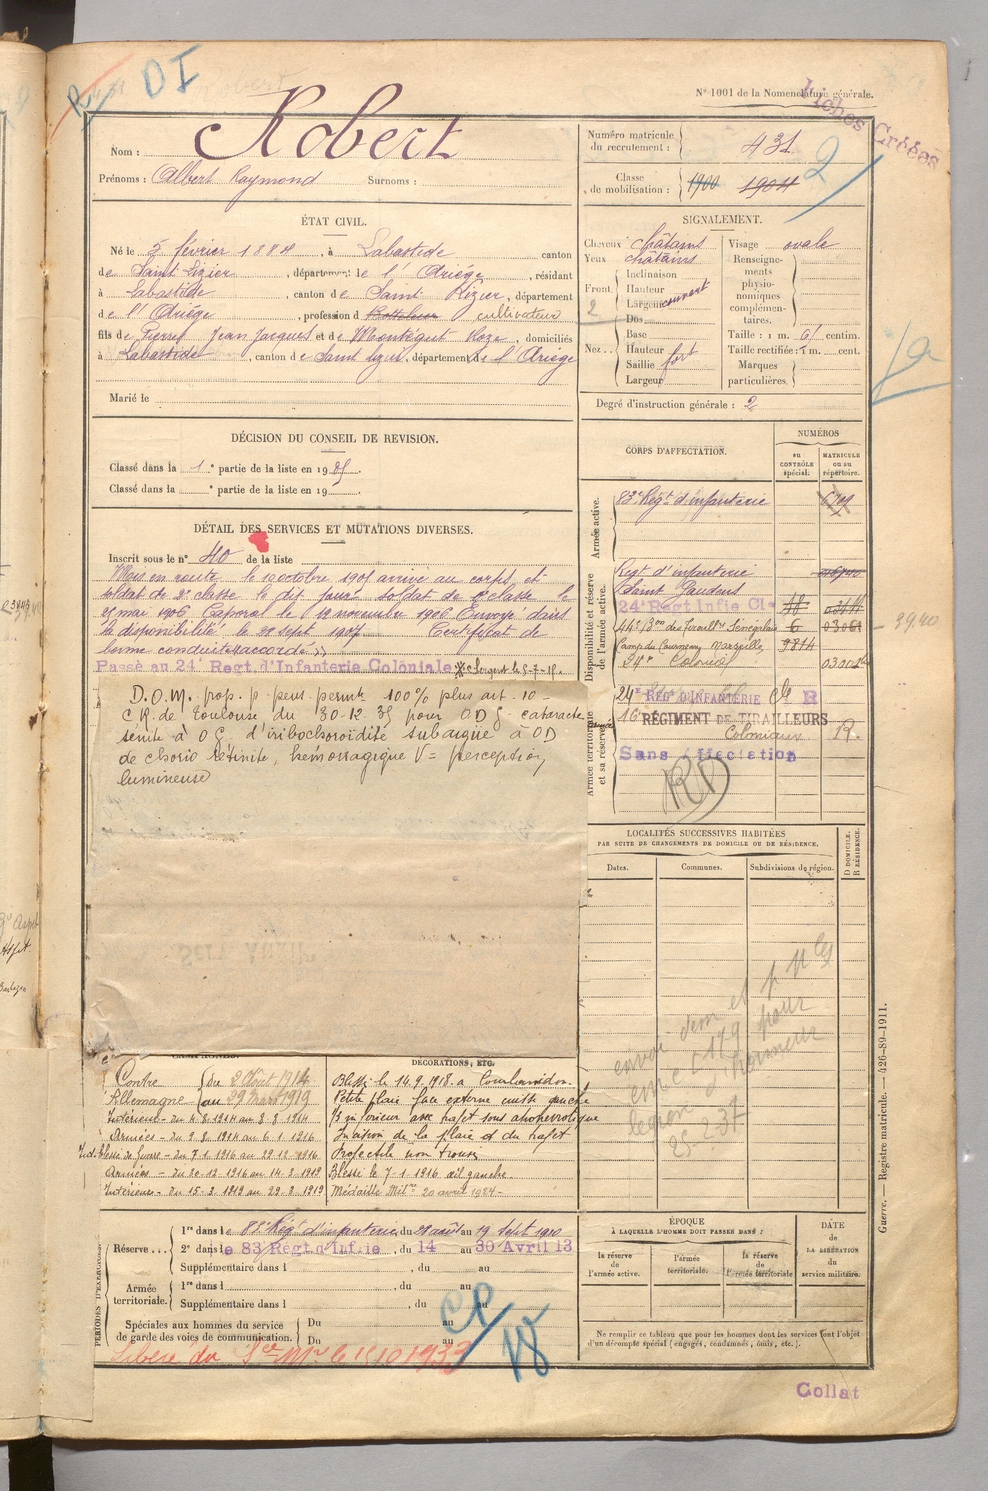 DI
Robert
N° 1001 de la Nomenclature générale.
Fiches Créées
Nom : Robert
Prénoms : Albert Raymond Surnoms :
Numéro matricule du recrutement : 431
Classe de mobilisation : 1900 1904
2
ÉTAT CIVIL.
Né le 5 février 1884, à Labastide canton
de Saint Lizier, département de l'Ariège, résidant
à Labastide, canton de Saint Lizier, département
de l'Ariège, profession d cultivateur
fils de Pierre Jean Jacques et de Montégut Roze, domiciliés
à Labastide, canton de Saint Lizier, département de l'Ariège
Marié le
SIGNALEMENT.
Cheveux châtains
Yeux châtains
Front
Inclinaison
Hauteur
Largeur couvert
2
Nez..
Dos
Base
Hauteur
Saillie fort
Largeur
Visage ovale
Renseignements physionomiques complémentaires.
Taille : 1 m. 61 centim.
Taille rectifiée : 1 m. cent.
Marques particulières.
Degré d'instruction générale : 2
DÉCISION DU CONSEIL DE REVISION.
Classé dans la 1e partie de la liste en 1905.
Classé dans la e partie de la liste en 19
DÉTAIL DES SERVICES ET MUTATIONS DIVERSES.
Inscrit sous le n° 40 de la liste
Mis en route le 10 octobre 1905 arrivé au corps et
soldat de 2e classe le dit jour soldat de 1e classe le
25 mai 1906 Caporal le 12 novembre 1906 Envoyé dans
la disponibilité le 28 sept 1907 Certificat de
bonne conduite "accordé"
Passé au 24e Regt. d'Infanterie Coloniale Sergent le 5-7-15.
D.O.M. prop. p. pens. permte 100% plus art. 10 -
C R. de Toulouse du 30-12-35 pour O D G. cataracte
sénile à O G. d'iridochoroïdité subaigüe à OD
de chorio rétinite, hémorragique V = perception
lumineuse
CORPS D'AFFECTATION.
NUMÉROS
au CONTRÔLE spécial.
MATRICULE ou au répertoire.
Armée active.
83e Régt d'infanterie
Disponibilité et réserve de l'armée active.
Régt d'infanterie
Saint Gaudens
24e Regt Infie Cle 48
44e Bon des Tiraillrs Sénégalais 6
Camp du Courneau Marseille 9814
24e Colonial
39.40
Armée territoriale et sa réserve
24e REGt D'INFANTERIE Cle R
16 RÉGIMENT DE TIRAILLEURS
Coloniaux R.
Sans affectation
RD
LOCALITÉS SUCCESSIVES HABITÉES
PAR SUITE DE CHANGEMENTS DE DOMICILE OU DE RÉSIDENCE.
Dates.
Communes.
Subdivisions de région.
D DOMICILE. R RÉSIDENCE.
envoi dem et p Mle
en C 179 pour
légion d'honneur
25-2-37
CAMPAGNES.
Contre Allemagne du 2 Août 1914 au 29 Mars 1919
Intérieur - du 4-8-1914 au 8-8-1914
Armées - du 9-8-1914 au 6-1-1916
Int. blessé de Guerre - du 7-1-1916 au 29-12-1916
Armées - du 30-12-1916 au 14-3-1919
Intérieur - du 15-3-1919 au 29-3-1919
DÉCORATIONS, ETC.
Blessé le 14.9.1918 à
Petite plaie face externe cuisse gauche
1/3 inférieur avec trajet sous aponévrotique
Incision de la plaie et du trajet
Projectile non trouvé
Blessé le 7-1-1916 œil gauche
Médaille Milre 20 août 1924 -
PÉRIODES D'EXERCICES
Réserve...
1re dans le 83e Régt d'infanterie, du 28 août au 19 Sept 1910
2e dans le 83 Regt d'Infie, du 14 au 30 Avril 13
Supplémentaire dans l , du au
Armée territoriale.
1re dans l , du au
Supplémentaire dans l , du au
Spéciales aux hommes du service de garde des voies de communication.
Du au
Du au
Libéré du Sce Mre le 15 10 1933
ÉPOQUE
À LAQUELLE L'HOMME DOIT PASSER DANS :
la réserve de l'armée active.
l'armée territoriale.
la réserve de l'armée territoriale
DATE de LA LIBÉRATION du service militaire.
Ne remplir ce tableau que pour les hommes dont les services font l'objet
d'un décompte spécial (engagés, condamnés, omis, etc.).
Guerre. — Registre matricule. — 426-89-1911.
Collat